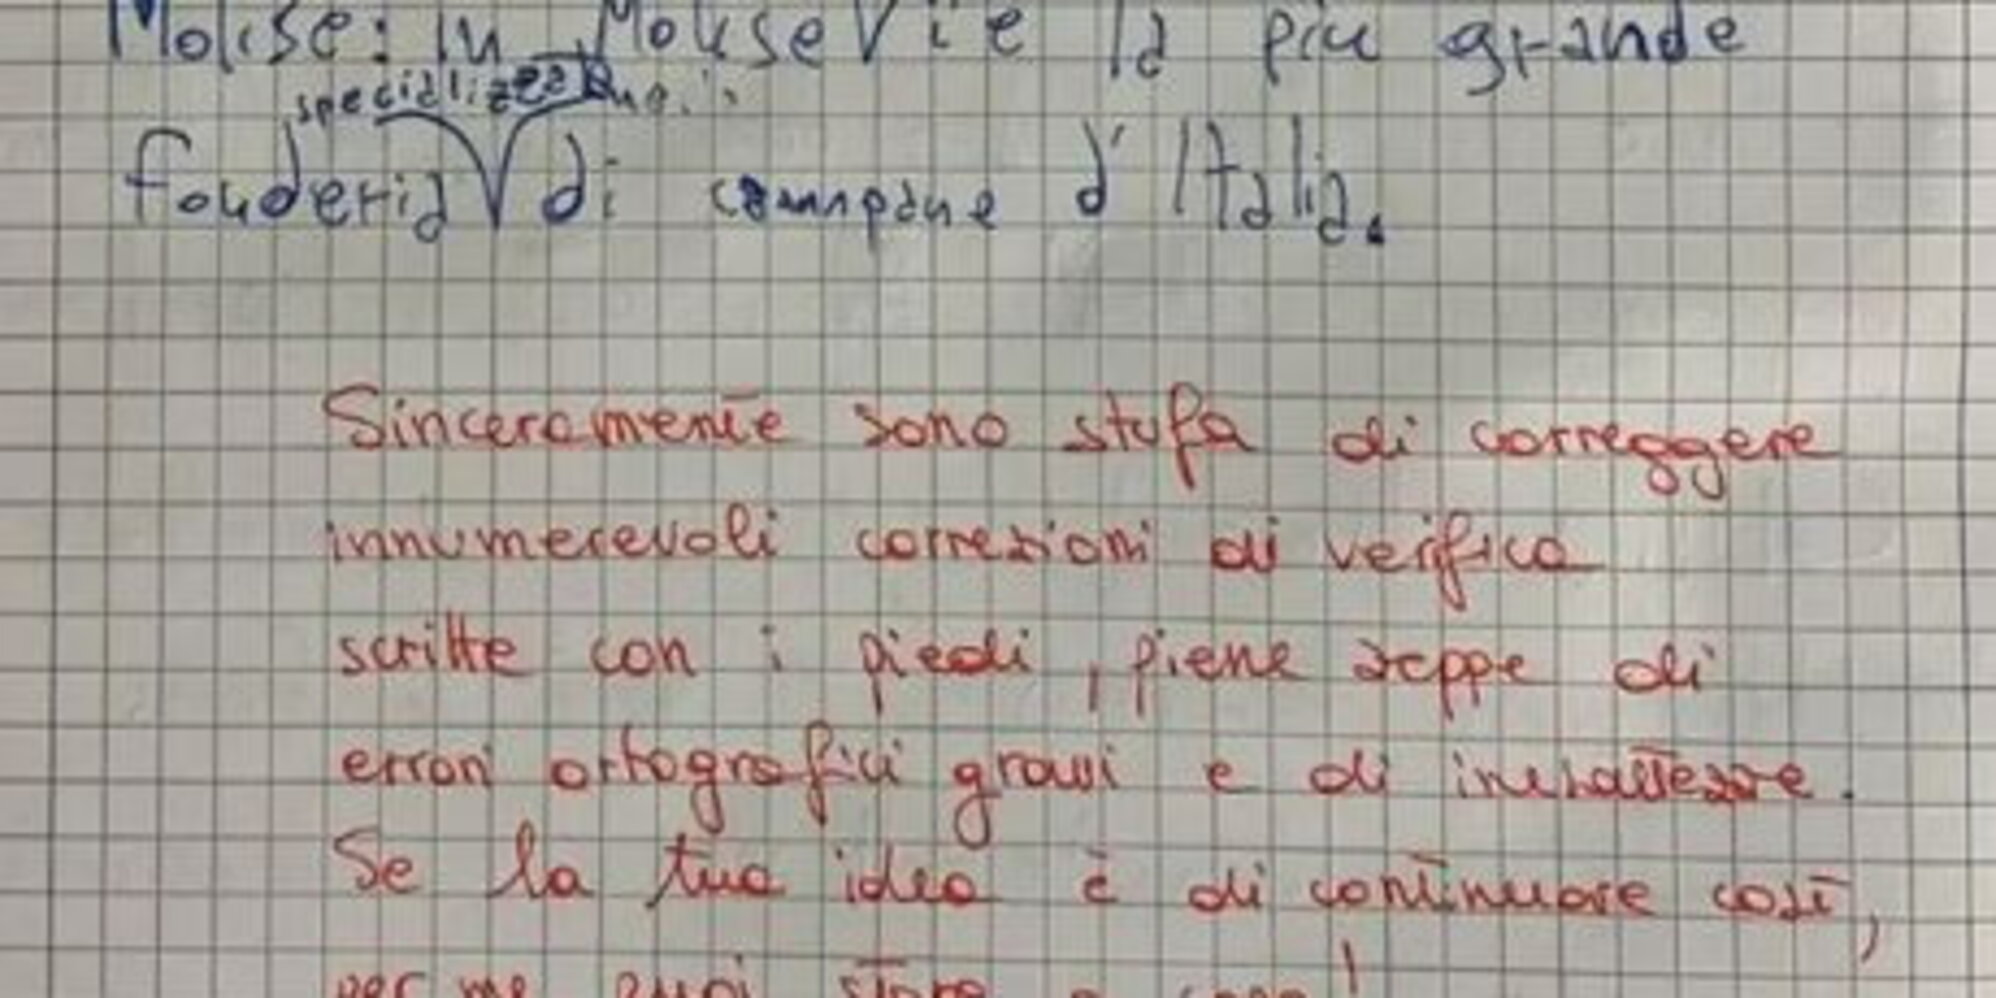 Molise: in Molise V i è la più grande
specializzata
fonderia V di campane d'Italia.
Sinceramente sono stufa di correggere
innumerevoli correzioni di verifica
scritte con i piedi, piene zeppe di
errori ortografici grassi e di inesattezze.
Se la tua idea è di continuare così,
per me puoi stare a casa!